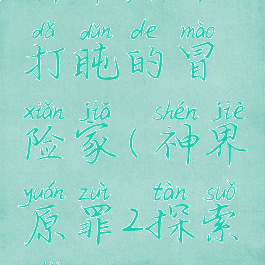 dǎ dǔn de mào
打盹的冒
xiǎn jiā shén jiè
险家(神界
yuán zuì tàn suǒ
原罪2探索